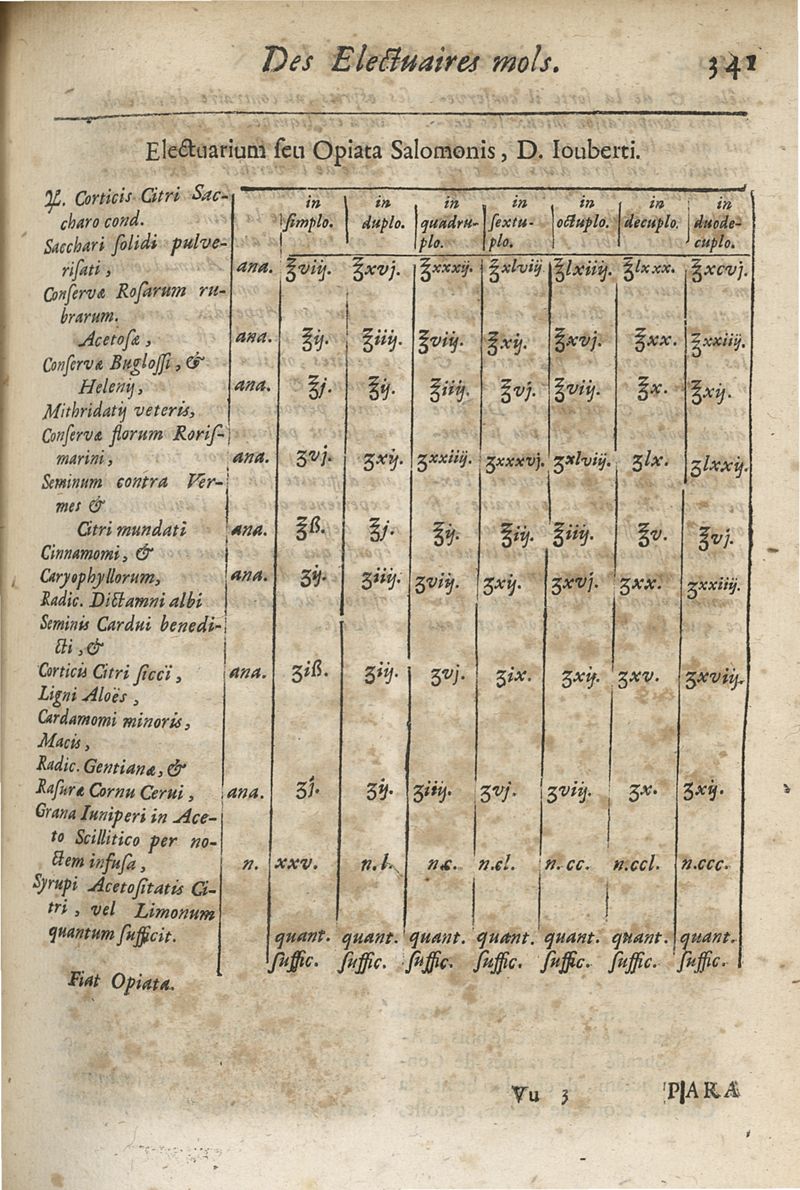 Des Electuaires mols. 341
Electuarium seu Opiata Salomonis, D. Iouberti.
℞. Corticis Citri Sac- in in in in in in in
charo cond. simplo. duplo. quadru- sextu- octuplo. decuplo. duode-
Sacchari solidi pulve- plo. plo. cuplo.
risati, ana. ℥viij. ℥xvj. ℥xxxij. ℥xlviij ℥lxiiij. ℥lxxx. ℥xcvj.
Conservæ Rosarum ru-
brarum.
Acetosæ, ana. ℥ij. ℥iiij. ℥viij. ℥xij. ℥xvj. ℥xx. ℥xxiiij.
Conservæ Buglossi, &
Helenij, ana. ℥j. ℥ij. ℥iiij. ℥vj. ℥viij. ℥x. ℥xij.
Mithridatij veteris,
Conservæ florum Roris-
marini, ana. ʒvj. ʒxij. ʒxxiiij. ʒxxxvj. ʒxlviij. ʒlx. ʒlxxij.
Seminum contra Ver-
mes &
Citri mundati ana. ℥ß. ℥j. ℥ij. ℥iij. ℥iiij. ℥v. ℥vj.
Cinnamomi, &
Caryophyllorum, ana. ʒij. ʒiiij. ʒviij. ʒxij. ʒxvj. ʒxx. ʒxxiiij.
Radic. Dictamni albi
Seminis Cardui benedi-
cti, &
Corticis Citri siccï, ana. ʒiß. ʒiij. ʒvj. ʒix. ʒxij. ʒxv. ʒxviij.
Ligni Aloës,
Cardamomi minoris,
Macis,
Radic. Gentianæ, &
Rasuræ Cornu Cerui, ana. ʒj. ʒij. ʒiiij. ʒvj. ʒviij. ʒx. ʒxij.
Grana Iuniperi in Ace-
to Scillitico per no-
ctem infusa, n. xxv. n.l. n.c. n.cl. n. cc. n.ccl. n.ccc.
Syrupi Acetositatis Ci-
tri, vel Limonum
quantum sufficit. quant. quant. quant. quant. quant. quant. quant.
suffic. suffic. suffic. suffic. suffic. suffic. suffic.
Fiat Opiata.
Vu 3 PARA